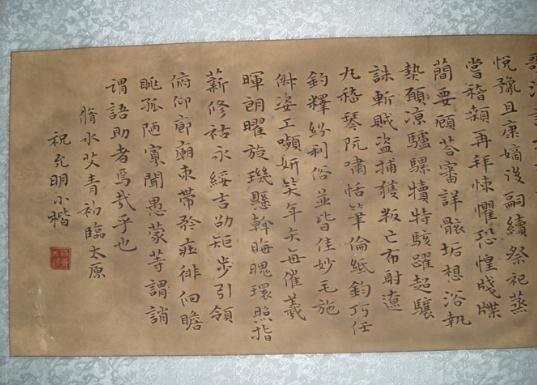 悅豫且康嫡後嗣續祭祀蒸
嘗稽顙再拜悚懼恐惶牋牒
簡要顧答審詳骸垢想浴執
熱願涼驢騾犢特駭躍超驤
誅斬賊盜捕獲叛亡布射遼
丸嵇琴阮嘯恬筆倫紙鈞巧任
釣釋紛利俗並皆佳妙毛施
淑姿工顰妍笑年矢每催羲
暉朗曜旋璣懸斡晦魄環照指
薪修祜永綏吉劭矩步引領
俯仰廊廟束帶矜莊徘徊瞻
眺孤陋寡聞愚蒙等謂誚
謂語助者焉哉乎也
水青初臨太原
祝允明小楷